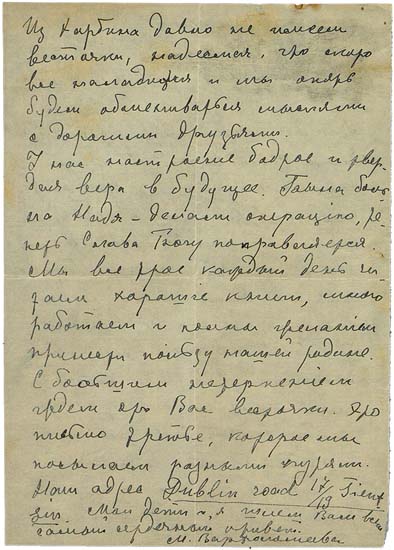 Из Харбина давно не имеем
весточки, надеемся, что скоро
все наладится и мы опять
будем обмениваться мыслями
с дорогими друзьями.
У нас настроение бодрое и твер-
дая вера в будущее. Больна бы-
ла Надя – делали операцию, те-
перь Слава Богу поправляется.
Мы все трое каждый день чи-
таем хорошие книги, много
работаем и полны желанием
принести пользу нашей родине.
С большим нетерпением
ждем от Вас весточки. Это
письмо третье, которое мы
посылаем разными путями.
Наш адрес Dublin road 17/19 Tient
sin Мои дети и я шлем Вам всем
самый сердечный привет.
М.